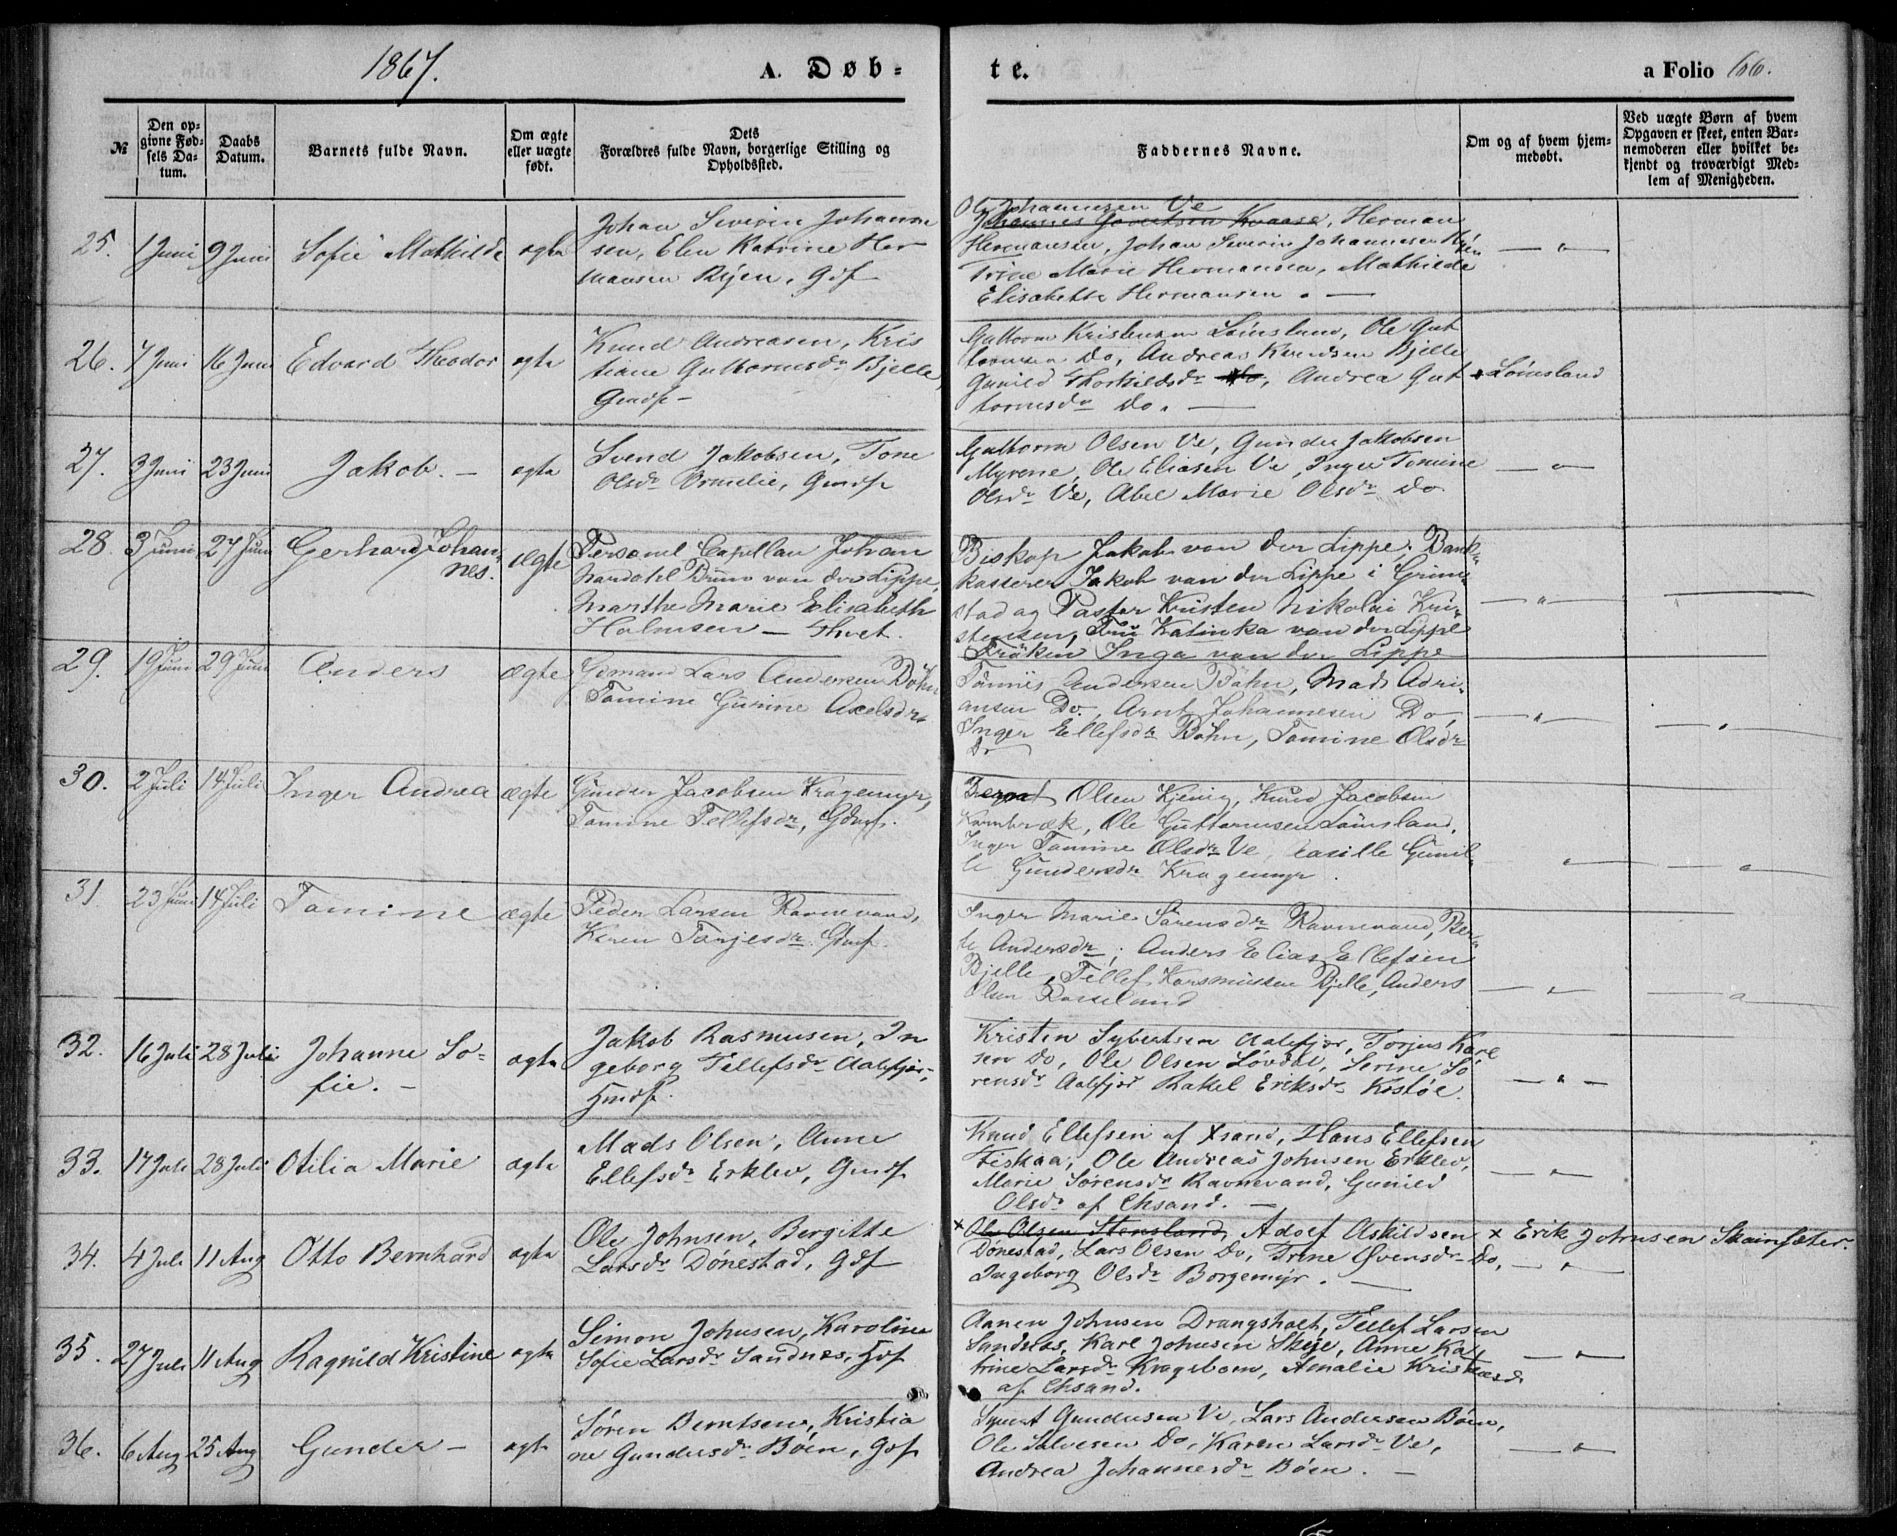 1867. A. Døb=
te. a Folio 66.
№
Den op=
givne Fød=
sels Da=
tum.
Daabs
Datum.
Barnets fulde Navn.
Om ægte
eller uægte
født.
Dets
Forældres fulde Navn, borgerlige Stilling og
Opholdssted.
Faddernes Navne.
Om og af hvem hjem=
medøbt.
Ved uægte Børn af hvem
Opgaven er skeet, enten Bar=
nemoderen eller hvilket be=
kjendt og troværdigt Med=
lem af Menigheden.
25. 1 Juni 9 Juni Sofie Mathilde ægte
Johan Severin Johanne
sen, Elen Katrine Her
mansen Ryen, Gdf
Ole Johannesen Ve
Johannes Kvaase, Herman
Hermansen, Johan Severin Johannesen Ryen
Trine Marie Hermansen, Mathilde
Elisabeth Hermansen. —
26. 7 Juni 16 Juni Edvard Theodor ægte
Knud Andreasen, Kris
tiane Guttormsdr Bjelle,
Gmdf —
Guttorm Kristensen Lømsland, Ole Gut
tormsen Do, Andreas Knudsen Bjelle
Gunild Thorkildsdr Do, Andrea Gut
tormsdr Do. —
* Lømsland
27. 3 Juni 23 Juni Jakob. — ægte
Svend Jakobsen, Tone
Olsdr Ormelie, Gmdf
Guttorm Olsen Ve, Gunder Jakobsen
Myrene, Ole Eliasen Ve, Inger Tomine
Olsdr Ve, Abel Marie Olsdr Do
28. 3 Juni 27 Juni Gerhard Johan=
nes. ægte
Personel Capellan Johan
Nardahl Brun von der Lippe,
Marthe Marie Elisabeth
Holmsen — Thvet.
Biskop Jakob von der Lippe, Bank=
kasserer Jakob von der Lippe i Grim=
stad og Pastor Kristen Nikolai Kri=
stensen, Fru Katinka von der Lippe
Frøken Inga von der Lippe
29. 19 Juni 29 Juni Anders ægte
Gdmand Lars Andersen Bøhn
Tomine Gurine Axelsdr
Tønnes Andersen Bøhn, Mads Adri=
ansen Do, Arnt Johannesen Do,
Inger Ellefsdr Bøhn, Tomine Olsdr
Do
30. 2 Juli 14 Juli Inger Andrea ægte
Gunder Jacobsen Kragemyr,
Tomine Tellefsdr, Gdmf.
Olsen Kjevig, Knud Jacobsen
Ole Guttormsen Lømsland,
Inger Tomine Olsdr Ve, Gunil=
le Gundersdr Kragemyr.
31. 23 Juni 14 Juli Tomine ægte
Peder Larsen Ravnevand,
Karen Torjesdr. Gdmf.
Inger Marie Sørensdr Ravnevand, Ber=
te Andersdr; Anders Elias Ellefsen
Bjelle, Tellef Rasmussen Bjelle, Anders
Olsen Rosseland
32. 16 Juli 28 Juli Johanne So=
fie. — ægte
Jakob Rasmusen, In
geborg Tellefsdr Aalefjær,
Hmdf.
Kristen Sybertsen Aalefjær, Torjus Karl
sen Do, Ole Olsen Løvdal, Serine Sø
rensdr Aalefjær Rakel Eriksdr Kostøe.
33. 17 Juli 28 Juli Otilia Marie ægte
Mads Olsen, Anne
Ellefsdr Erklev, Gmdf
Knud Ellefsen af Xsand, Hans Ellefsen
Fiskaa, Ole Andreas Johnsen Erklev,
Marie Sørensdr Ravnevand, Gunild
Olsdr af Chsand. —
34. 4 Juli 11 Aug Otto Bernhard ægte
Ole Johnsen, Bergitte
Larsdr Dønestad, Gdf
x Ole Olsen Stensland, Adolf Askildsen
Dønestad, Lars Olsen Do, Trine Øvensdr Do,
Ingeborg Olsdr Borgemyr. —
x Erik Johnsen Skainsæter.
35. 27 Juli 11 Aug Ragnild Kristine ægte
Simon Johnsen, Karoline
Sofie Larsdr Sandnes, Hdf
Aanen Johnsen Drangsholt, Tellef Larsen
Sandnes, Karl Johnsen Skye, Anne Ka
trine Larsdr Kragebom, Amalie Kristiansdr
af Chsand.
36. 6 Aug 25 Aug Gunder — ægte
Søren Berntsen, Kristia
ne Gundersdr Bøen, Gdf
Syvert Gundersen Ve, Lars Andersen Bøen,
Ole Salvesen Do, Karen Larsdr Ve,
Andrea Johannesdr Bøen. —